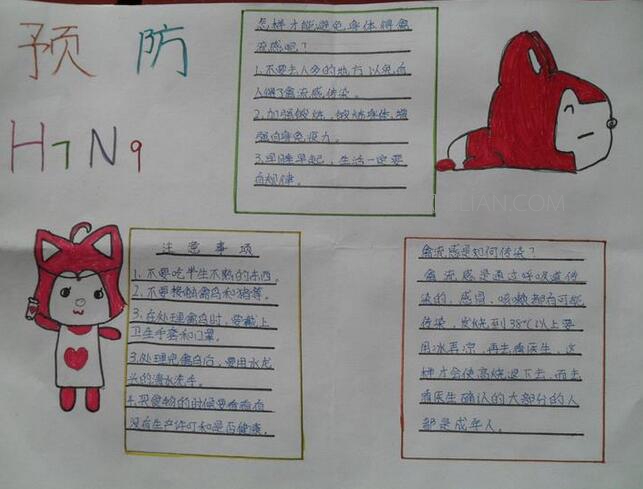 预防
H7N9
怎样才能避免身体得禽
流感呢？
1.不要去人多的地方以免有
人得了禽流感传染。
2.加强锻炼，锻炼身体，增
强自身免疫力。
3.早睡早起，生活一定要
有规律。
注意事项
1.不要吃半生不熟的东西。
2.不要接触禽鸟和猪等。
3.在处理禽鸟时，要戴上
卫生手套和口罩。
3.处理完禽鸟后，要用水龙
头的清水洗手。
4.买食物的时候要看看有
没有生产许可和是否健康。
禽流感是如何传染？
禽流感是通过呼吸道传
染的，感冒，咳嗽都有可能
传染，发烧到38℃以上要
用冰再凉，再去看医生，这
样才会使高烧退下去，而去
看医生确认的大部分的人
都是成年人。